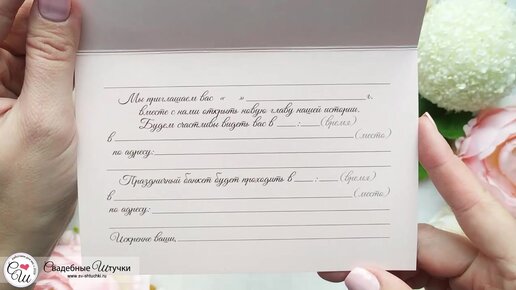 Мы приглашаем вас « » г.
вместе с нами открыть новую главу нашей истории.
Будем счастливы видеть вас в : (время)
в (место)
по адресу:
Праздничный банкет будет проходить в : (время)
в (место)
по адресу:
Искренне ваши,
СШ
Свадебные Штучки
www.sv-shtuchki.ru